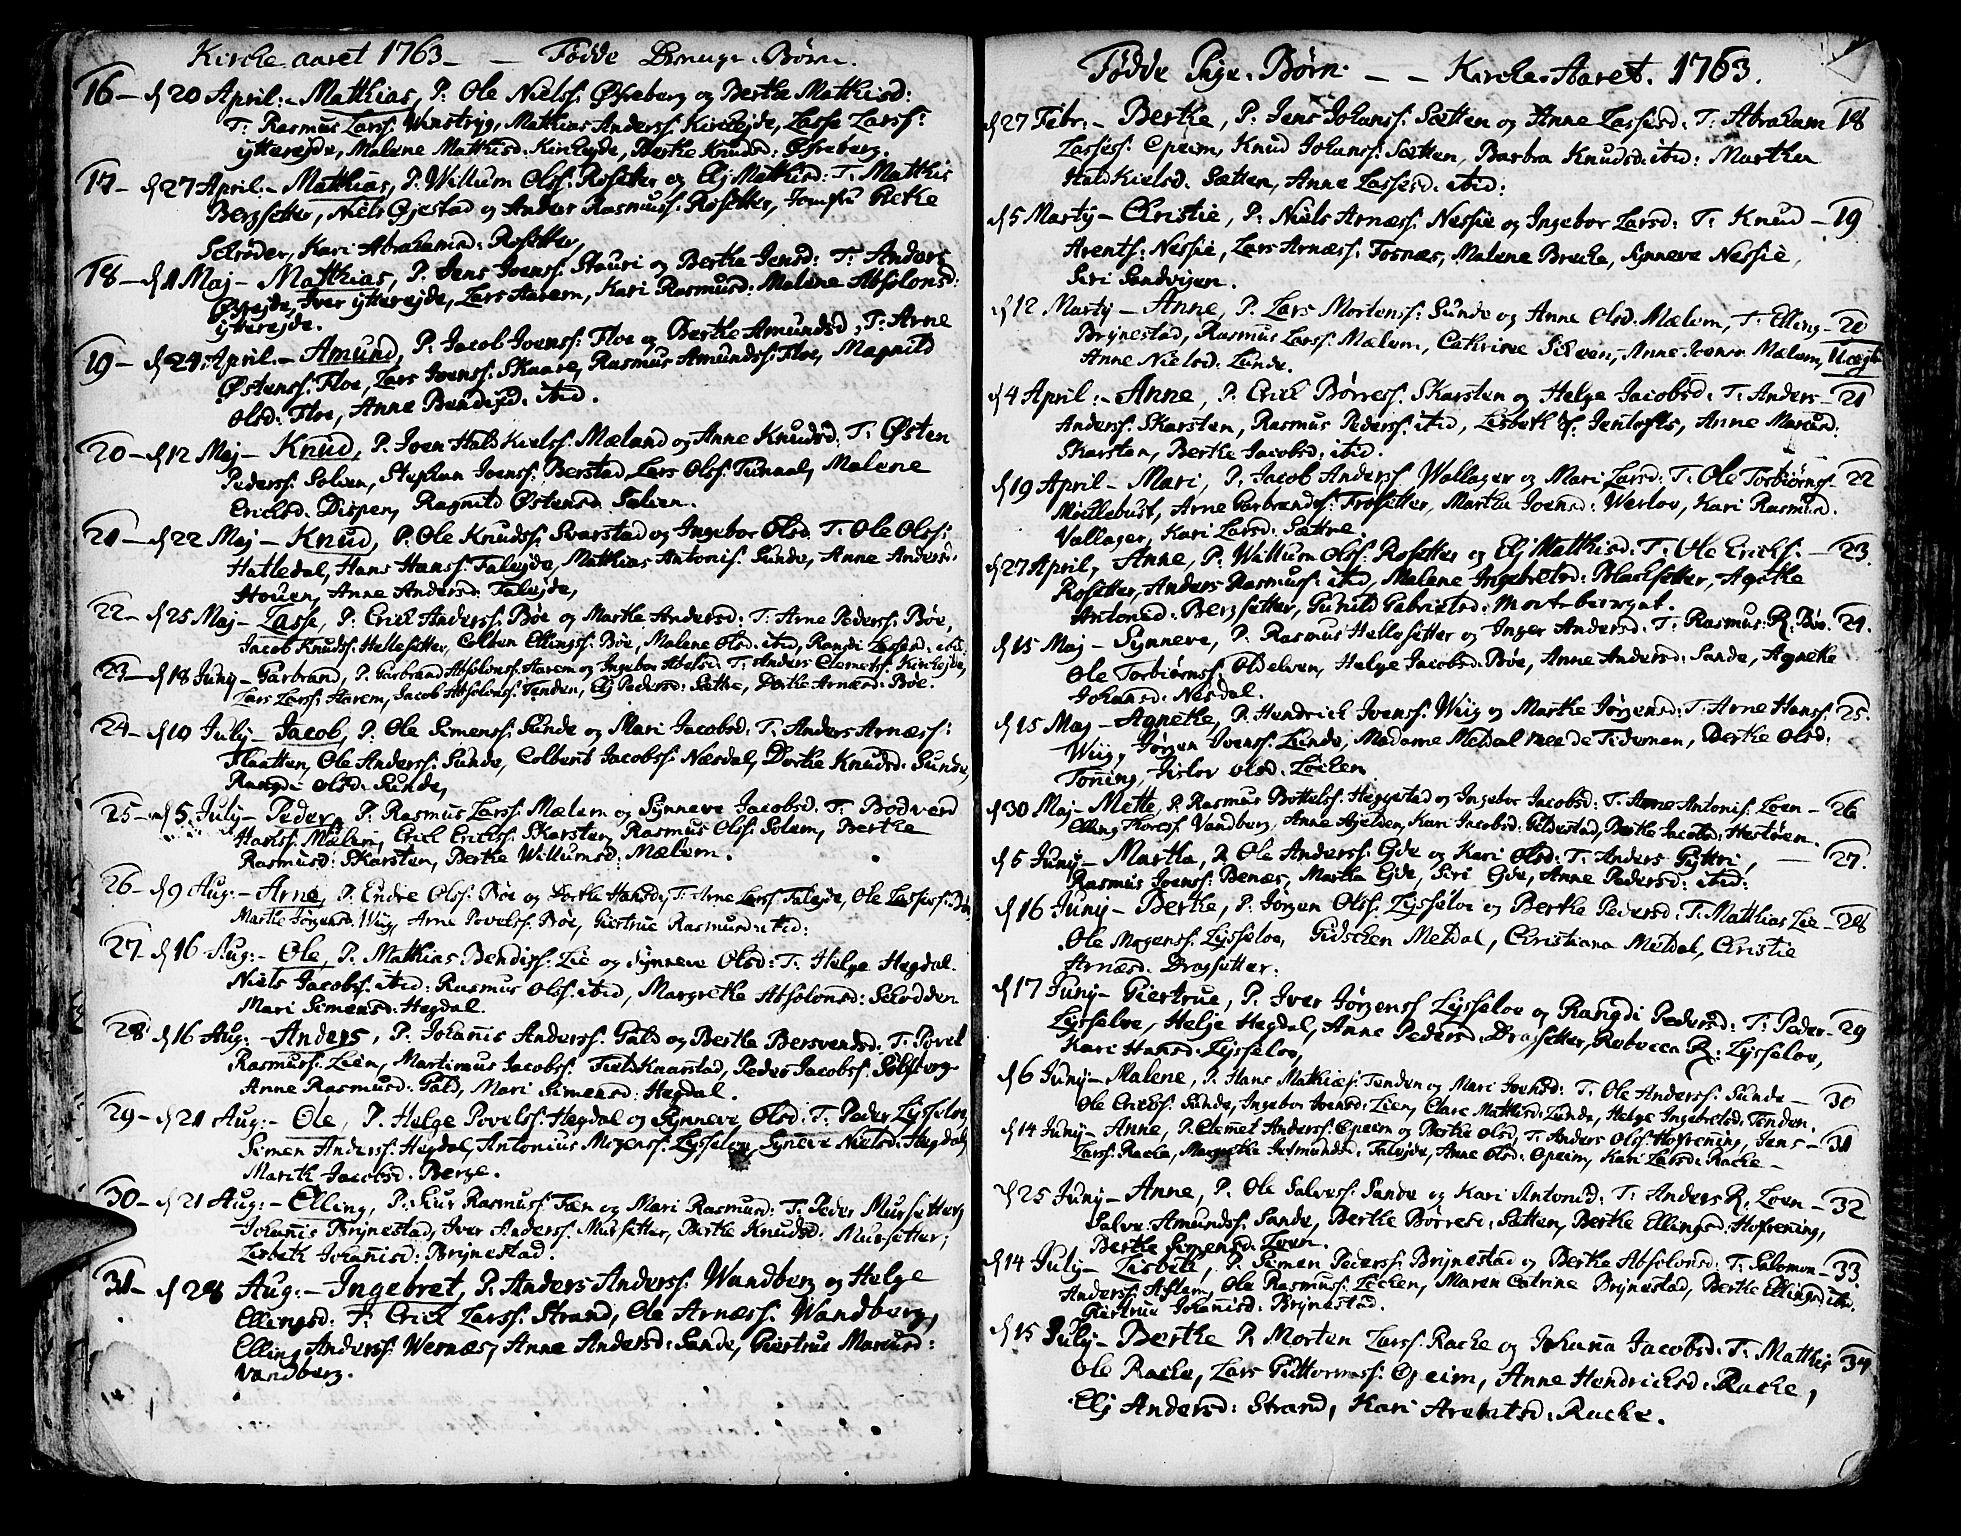 Kirche aaret 1763 — — Fødde Drenge Børn.
16 — d 20 April: — Matthias, P: Ole Nielss: Øfreberg og Berthe Mathisd:
T: Rasmus Larss: Winstryg, Mathias Anderss: Kirchejde, Lasse Larss:
ytterejde, Malene Mathisd: Kirchejde, Berthe Knudsd: Øfreberg.
17 — d 27 April — Matthias, P: Willum Olss: Rosetter og Elj Mathisd: T: Matthis
Bergsetter, Niels Øjestad og Anders Rasmuss: Rosetter, Jomfru Grethe
Schrøder, Kari Abrahamsd: Rosetter,
18 — d 1 Maj — Matthias, P: Jens Ivenss: Stauri og Berthe Jensd: T: Anders
Øfrejde, Iver ytterejde, Lars Aarem, Kari Rasmusd: Malene Absolonsd:
ytterejde.
19 — d 24 April — Amund, P: Jacob Ivenss: Floe og Berthe Amundsd: T: Arne
Østenss: Floe, Lars Ivenss: Skaare, Rasmus Amundss: Floe, Magnild
Olsd: Floe, Anne Bendixd: ibid.
20 — d 12 Maj — Knud, P: Iven Hald Kielss: Mæland og Anne Knudsd: T: Østen
Pederss: Solven, Stephan Ivenss: Berstad, Lars Olss: Tunaal, Malene
Ericksd: Dispen, Ragnild Østensd: Solven.
21 — d 22 Maj — Knud, P: Ole Knudss: Svarstad og Ingebor Olsd: T: Ole Olss:
Hatledal, Hans Hanss: Falejde, Mathias Antonis: Sunde, Anne Andersd:
Houen, Anne Andersd: Falejde,
22 — d 25 Maj — Lasse, P: Erick Anderss: Bøe og Marthe Andersd: T: Arne Pederss: Bøe,
Jacob Knudss: Hellesetter, Colben Ellingss: Bøe, Malene Olsd: ibid, Rangdi Lassesd: ibid
23 — d 18 Juny — Garbrand, P: Garbrand Absolonss: Aarem og Ingebor Abelsd: T: Anders Clemetss: Kirchejde,
Lars Larss: Aarem, Jacob Absolons: Tenden, Elj Pedersd: Sættre, Dorthe Arnæsd: Bøe.
24 — d 10 July — Jacob, P: Ole Simenss: Sunde og Mari Jacobsd: T: Anders Arnæss:
Flaatten, Ole Anderss: Sunde, Colbent Jacobss: Næsdal, Dorthe Knudsd: Sunde,
Rangdi Olsd: Sunde,
25 — d 5 July — Peder, P: Rasmus Larss: Mælem og Synneve Jacobsd: T: Bodverd
Hanss: Mælem, Erick Erickss: Skarsten, Rasmus Olss: Solem, Berthe
Rasmusd: Skarsten, Berthe Willumsd: Mælem.
26 — d 9 Aug: — Arne, P: Endre Olss: Bøe og Dorthe Hansd: T: Arne Larss: Falejde, Ole Lassess: Bøe
Marthe Jørgensd: Wiig, Arne Povelss: Bøe, Giertrue Rasmusd: ibid:
27 — d 16 Aug: — Ole, P: Mathias Bendixs: Lie og Synneve Olsd: T: Helge Hegdal
Niels Jacobss: ibid: Rasmus Olss: ibid, Margrethe Absolonsd: Schrodden
Mari Simensd: Hegdal.
28 — d 16 Aug: — Anders, P: Johannis Anderss: Gald og Bertha Bersvendsd: T: Povel
Rasmuss: Lien, Martinus Jacobss: Field Knaarstad, Peder Jacobss: Solberg
Anne Rasmusd: Gald, Mari Simensd: Hegdal.
29 — d 21 Aug: — Ole, P: Helge Povelss: Hegdal og Synneve Olsd: T: Peder Lysseloe,
Simen Anderss: Hegdal, Antonius Mogenss: Lysseloe, Synneve Nielsd: Hegdal,
Marith Jacobsd: Berge.
30 — d 21 Aug: — Elling, P: Siur Rasmuss: Tæn og Mari Rasmusd: T: Peder Mursetter,
Johanis Brynestad, Iver Anderss: Mursetter, Berthe Knudsd: Mursetter;
Lisbeth Johanisd: Brynestad.
31 — d 28 Aug: — Ingebret, P: Anders Anderss: Wandberg og Helge
Ellingsd: T: Erick Larss: Strand, Ole Arnæss: Wandberg,
Elling Anderss: Wernæs, Anne Andersd: Sande, Giertrue Marcusd:
Vandberg.
Fødde Pige Børn — — Kirche Aaret 1763.
d 27 Febr: — Berthe, P: Jens Johanss: Sætten og Anne Lassesd: T: Abraham 18
Lassess: Opeim, Knud Johanss: Sætten, Barbra Knudsd: ibid: Martha
Hald Kielsd: Sætten, Anne Lassesd: ibid:
d 5 Marty — Christie, P: Niels Arnæss: Nessie og Ingebor Larsd: T: Knud — 19
Arents: Nessie, Lars Arnæss: Fosnæs, Malene Brecha, Synneve Nessie,
Siri Sandvigen.
d 12 Marty — Anne, P: Lars Mortenss: Sunde og Anne Olsd: Mælem, T: Elling — 20
Brynestad, Rasmus Larss: Mælem, Cathrine, Anne Mælem, Uægt
Anne Nielsd: Sunde.
d 4 April: — Anne, P: Erick Børress: Skarsten og Helge Jacobsd: T: Anders — 21
Anderss: Skarsten, Rasmus Pederss: ibid, Lisbeth Jenlofts, Anne Marcusd:
Skarsten, Berthe Jacobsd: ibid.
d 19 April — Mari, P: Jacob Anderss: Wollager og Mari Larsd: T: Ole Torbiørns — 22
Mycklebust, Arne Garbrands: Frosetter, Martha Ivensd: Werlov, Kari Rasmusd:
Vallager, Kari Larsd: Sættre.
d 27 April, Anne, P: Willum Olss: Rosetter og Elj Matthisd: T: Ole Ericks: — 23.
Rosetter, Anders Rasmuss: ibid, Malene Ingebretsd: Blachsetter, Agethe
Antonisd: Bergsetter, Gunild Gabrielsd:
d 15 Maj — Synneve, P: Rasmus Hellesetter og Inger Andersd: T: Rasmus R: Bøe. 24.
Ole Torbiørnss: Oldelven, Helge Jacobsd: Bøe, Anne Andersd: Sande, Agnethe
Johansd: Nesdal.
d 15 Maj — Agnethe, P: Hendrick Ivenss: Wiig og Marthe Jørgensd: T: Arne Hanss: 25.
Wiig, Jørgen Ivenss: Sunde, Madame Meldal Tideman, Berthe Olsd:
Tonning, Jislov Olsd: Løchen
d 30 Maj — Mette, P: Rasmus Bottelss: Heggestad og Ingebor Jacobsd: T: Arne Antonis: Loen — 26
Elling Thoress: Vandberg, Anne Hjelden, Kari Jacobsd: Gildestad, Berthe Jacobsd: Hestøen.
d 5 Juny — Martha, P: Ole Anderss: Gde og Kari Olsd: T: Anders Gyttri, — 27.
Rasmus Ivenss: Benæs, Martha Gde, Siri Gde, Anne Pedersd: ibid:
d 16 Juny — Berthe, P: Jørgen Olss: Lysseloe og Berthe Pedersd: T: Matthias Lie — 28
Ole Mogenss: Lysseloe, Gidschen Meldal, Christiana Meldal, Christie
Arnæsd: Dragsetter.
d 17 Juny — Giertrue, P: Iver Jørgenss: Lysseloe og Rangdi Pedersd: T: Peder — 29
Lysseloe, Helje Hegdal, Anne Pedersd: Dragsetter, Rebecca R: Lysseloe,
Kari Hansd: Lysseloe,
d 6 Juny — Malene, P: Hans Mathiæs: Tenden og Mari Ivensd: T: Ole Anderss: Sunde — 30
Ole Erickss: Sunde, Ingebor Ivensd: Lien, Clare Mathisd: Sunde, Helge Ingebretsd: Tenden.
d 14 Juny — Anne, P: Clemet Anderss: Opeim og Berthe Olsd, T: Anders Olss: Hofrening, Jens — 31
Larss: Rache, Margrethe Falejde, Anne Olsd: Opeim, Kari Larsd: Rache —
d 25 Juny — Anne, P: Ole Salvess: Sande og Kari Antonisd: T: Anders R: Loen — 32
Salve Amundss: Sande, Berthe Børresd: Sætten, Berthe Ellingsd: Hofrening,
Berthe Simensd: Loen.
d 14 July — Lisbeth, P: Simen Pederss: Brynestad og Berthe Absolonsd: T: Salomon — 33.
Anderss: Aflem, Ole Rasmuss: Løchen, Maren Catrine Brynestad, Berthe Ellingsd: ibid.
Giertrue Johanisd: Brynestad.
d 15 July — Berthe P: Morten Larss: Rache og Johanna Jacobsd: T: Matthis 34
Ole Rache, Lars Guttormss: Opeim, Anne Hendricksd: Rache,
Elj Andersd: Strand, Kari Arentsd: Rache.